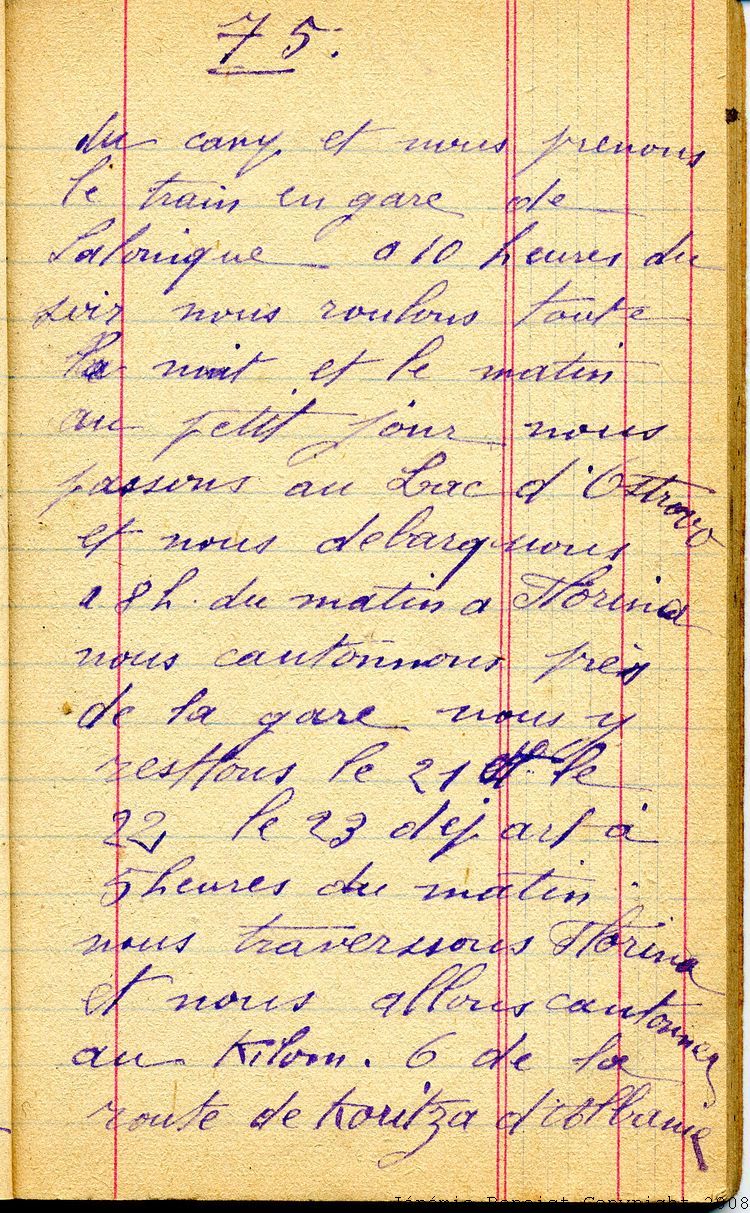 75.
du camp et nous prenons
le train en gare de
Salonique a 10 heures du
soir nous roulons toute
la nuit et le matin
au petit jour nous
passons au Lac d'Ostrovo
et nous debarquons
a 8h. du matin a Florina
nous cantonnons près
de la gare nous y
restons le 21 et le
22, le 23 départ à
5 heures du matin.
nous traverssons Florina
et nous allons cantonner
au Kilom. 6 de la
route de Koritza d'Albanie
Jérémie Benoist Copyright 2008